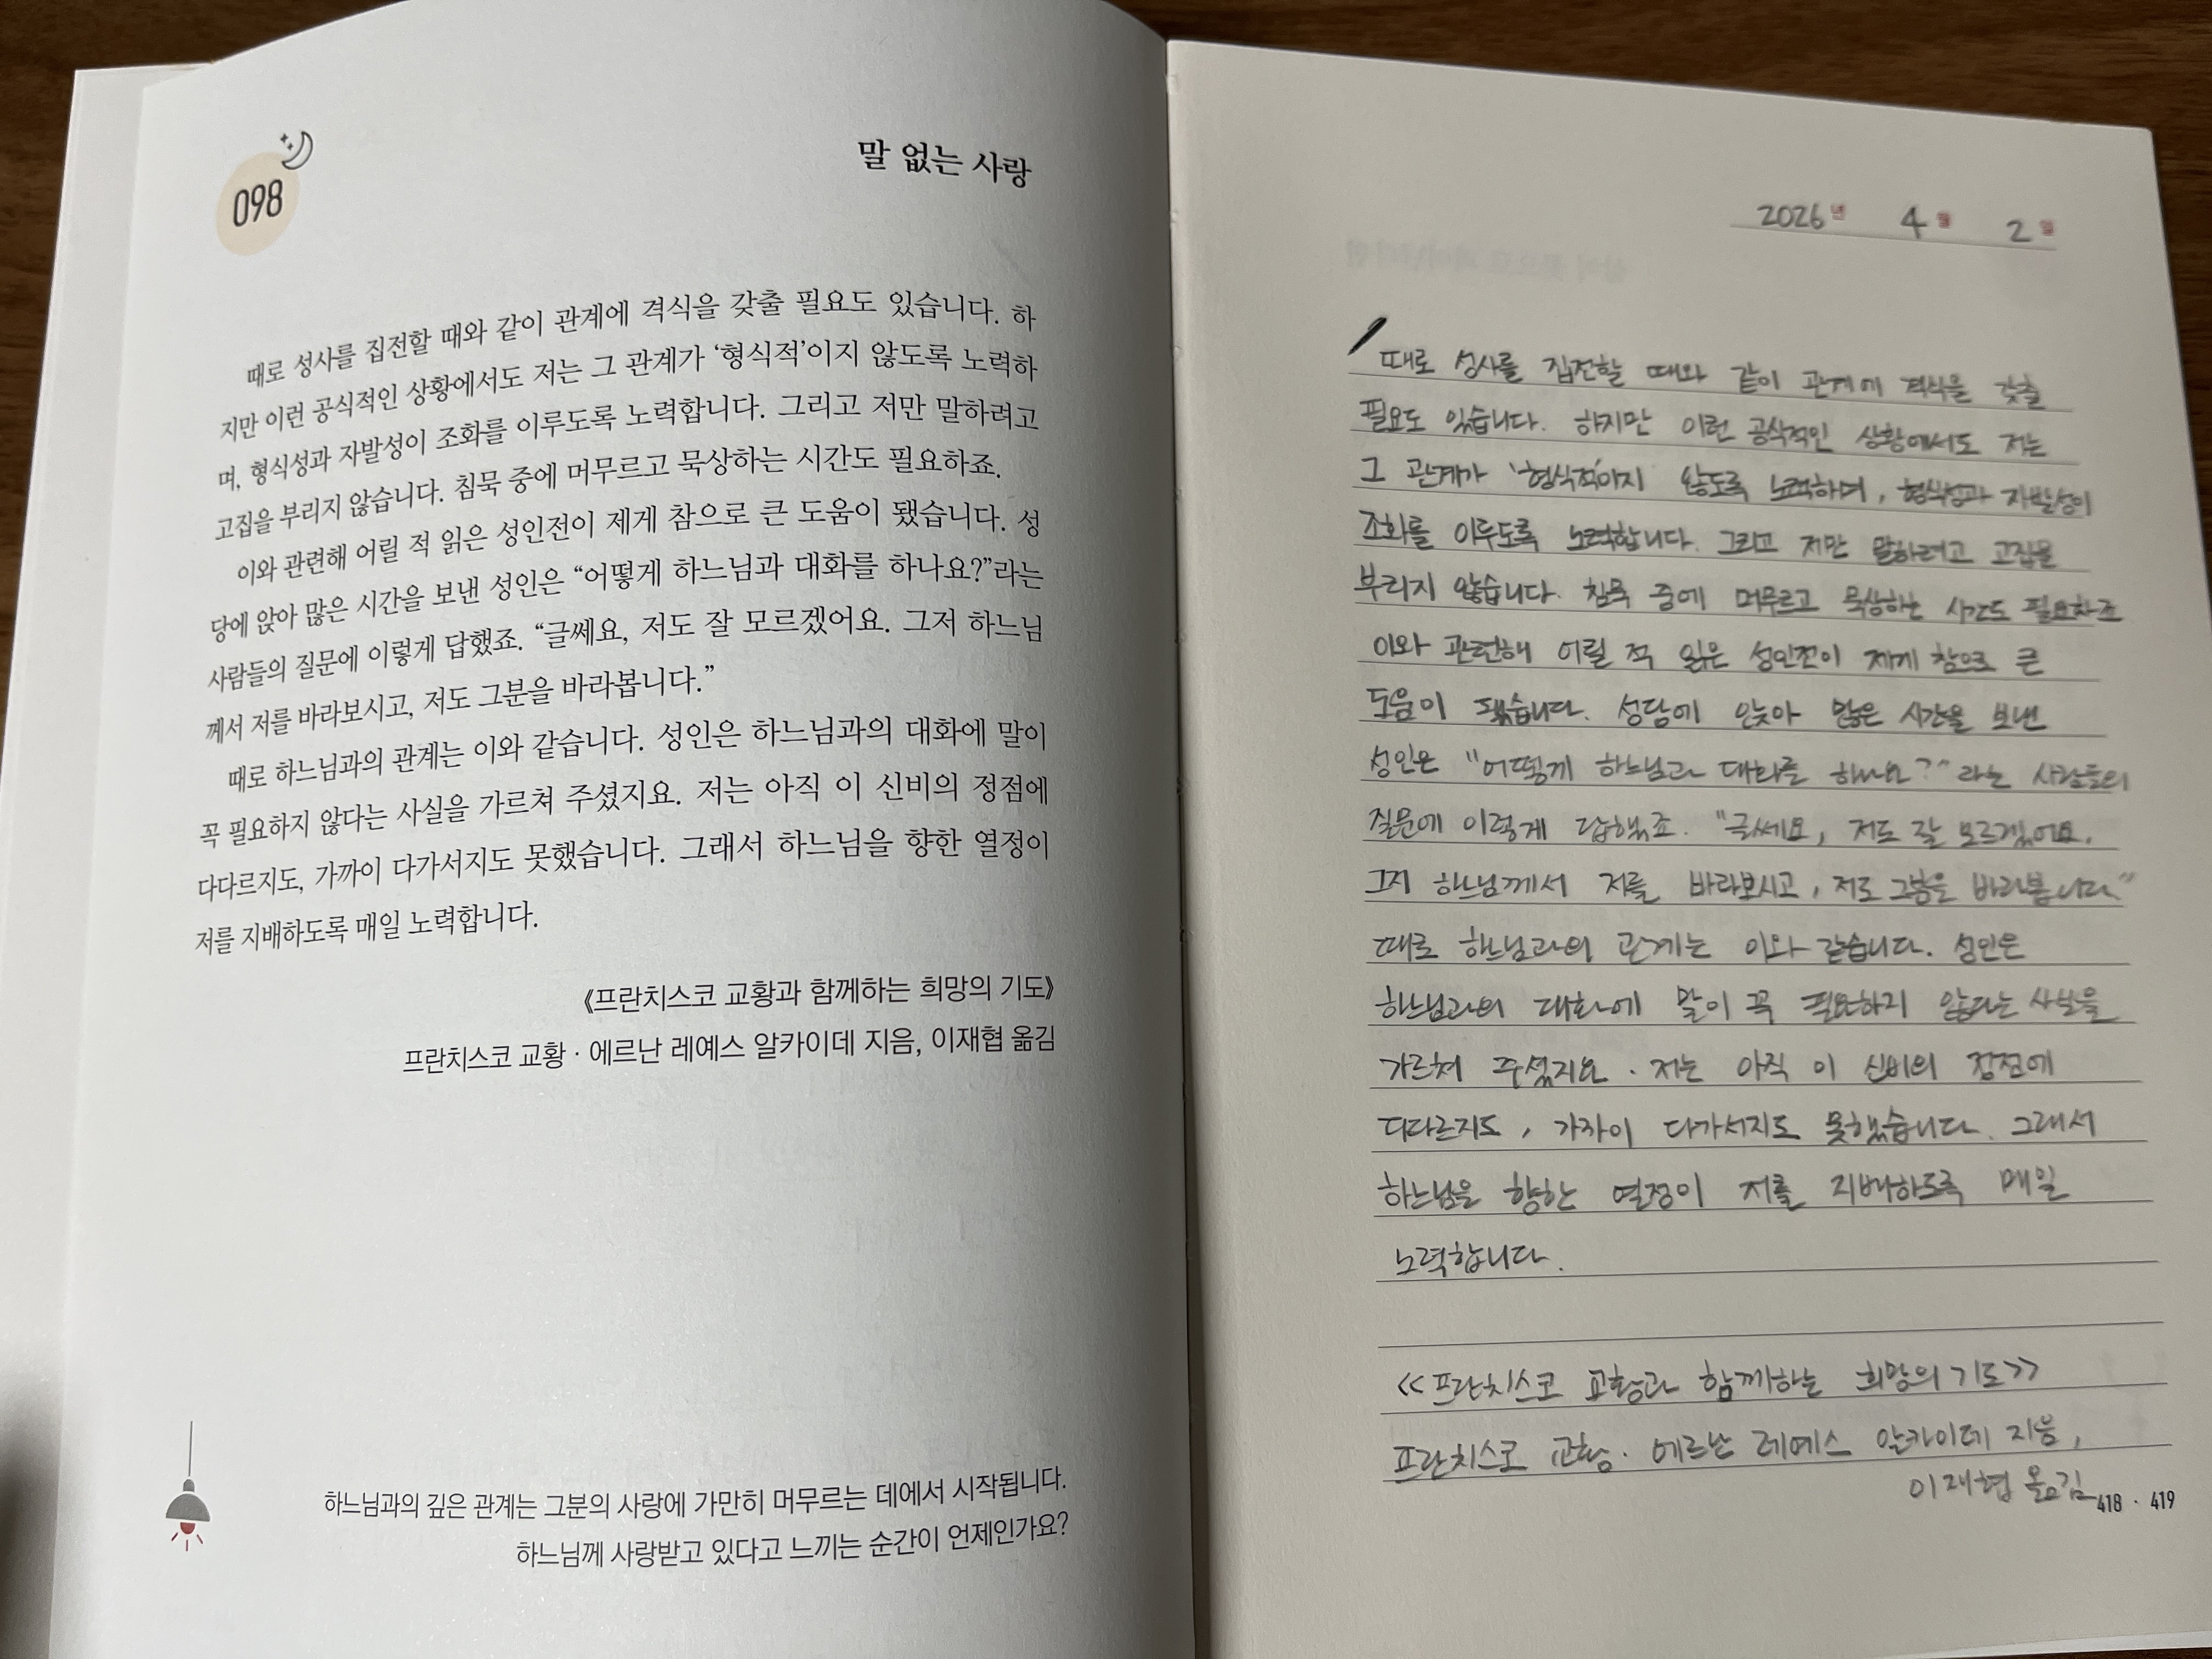 098
말 없는 사랑
때로 성사를 집전할 때와 같이 관계에 격식을 갖출 필요도 있습니다. 하
지만 이런 공식적인 상황에서도 저는 그 관계가 ‘형식적’이지 않도록 노력하
며, 형식성과 자발성이 조화를 이루도록 노력합니다. 그리고 저만 말하려고
고집을 부리지 않습니다. 침묵 중에 머무르고 묵상하는 시간도 필요하죠.
이와 관련해 어릴 적 읽은 성인전이 제게 참으로 큰 도움이 됐습니다. 성
당에 앉아 많은 시간을 보낸 성인은 “어떻게 하느님과 대화를 하나요?”라는
사람들의 질문에 이렇게 답했죠. “글쎄요, 저도 잘 모르겠어요. 그저 하느님
께서 저를 바라보시고, 저도 그분을 바라봅니다.”
때로 하느님과의 관계는 이와 같습니다. 성인은 하느님과의 대화에 말이
꼭 필요하지 않다는 사실을 가르쳐 주셨지요. 저는 아직 이 신비의 정점에
다다르지도, 가까이 다가서지도 못했습니다. 그래서 하느님을 향한 열정이
저를 지배하도록 매일 노력합니다.
《프란치스코 교황과 함께하는 희망의 기도》
프란치스코 교황 · 에르난 레예스 알카이데 지음, 이재협 옮김
하느님과의 깊은 관계는 그분의 사랑에 가만히 머무르는 데에서 시작됩니다.
하느님께 사랑받고 있다고 느끼는 순간이 언제인가요?
2026년 4월 2일
때로 성사를 집전할 때와 같이 관계에 격식을 갖출
필요도 있습니다. 하지만 이런 공식적인 상황에서도 저는
그 관계가 '형식적'이지 않도록 노력하며, 형식성과 자발성이
조화를 이루도록 노력합니다. 그리고 저만 말하려고 고집을
부리지 않습니다. 침묵 중에 머무르고 묵상하는 시간도 필요하죠
이와 관련해 어릴 적 읽은 성인전이 제게 참으로 큰
도움이 됐습니다. 성당에 앉아 많은 시간을 보낸
성인은 "어떻게 하느님과 대화를 하나요?"라는 사람들의
질문에 이렇게 답했죠. "글쎄요, 저도 잘 모르겠어요.
그저 하느님께서 저를 바라보시고, 저도 그분을 바라봅니다."
때로 하느님과의 관계는 이와 같습니다. 성인은
하느님과의 대화에 말이 꼭 필요하지 않다는 사실을
가르쳐 주셨지요. 저는 아직 이 신비의 정점에
다다르지도, 가까이 다가서지도 못했습니다. 그래서
하느님을 향한 열정이 저를 지배하도록 매일
노력합니다.
<<프란치스코 교황과 함께하는 희망의 기도>>
프란치스코 교황 · 에르난 레예스 알카이데 지음,
이재협 옮김
418 · 419